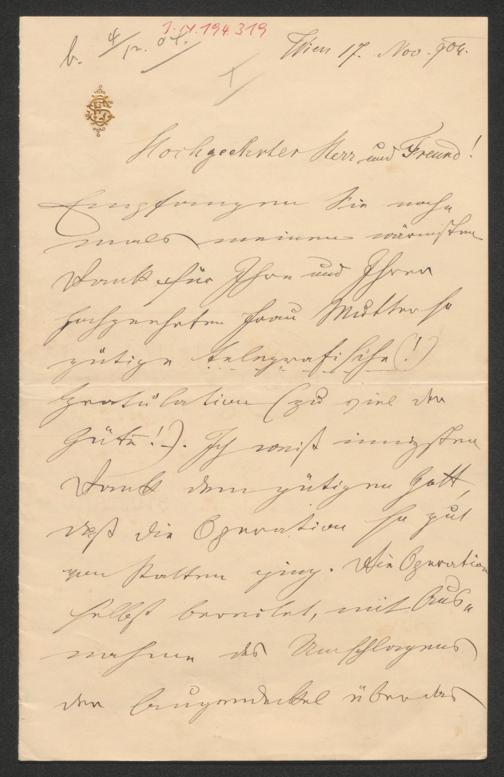 I.N. 194.319
b. 4/12. 04.
Wien 17. Nov. 904.
Hochgeehrter Herr und Freund!
Empfangen Sie noch
mals meinen wärmsten
Dank für Ihre und Ihrer
hochgeehrten Frau Mutter so
gütige telegrafische (!)
Gratulation (zu viel der
Güte!). Ich weiß innigsten
Dank dem gütigen Gott,
daß die Operation so gut
von Statten ging. Die Operation
selbst bereitet, mit Aus-
nahme des Umschlagens
der Augendeckel über das